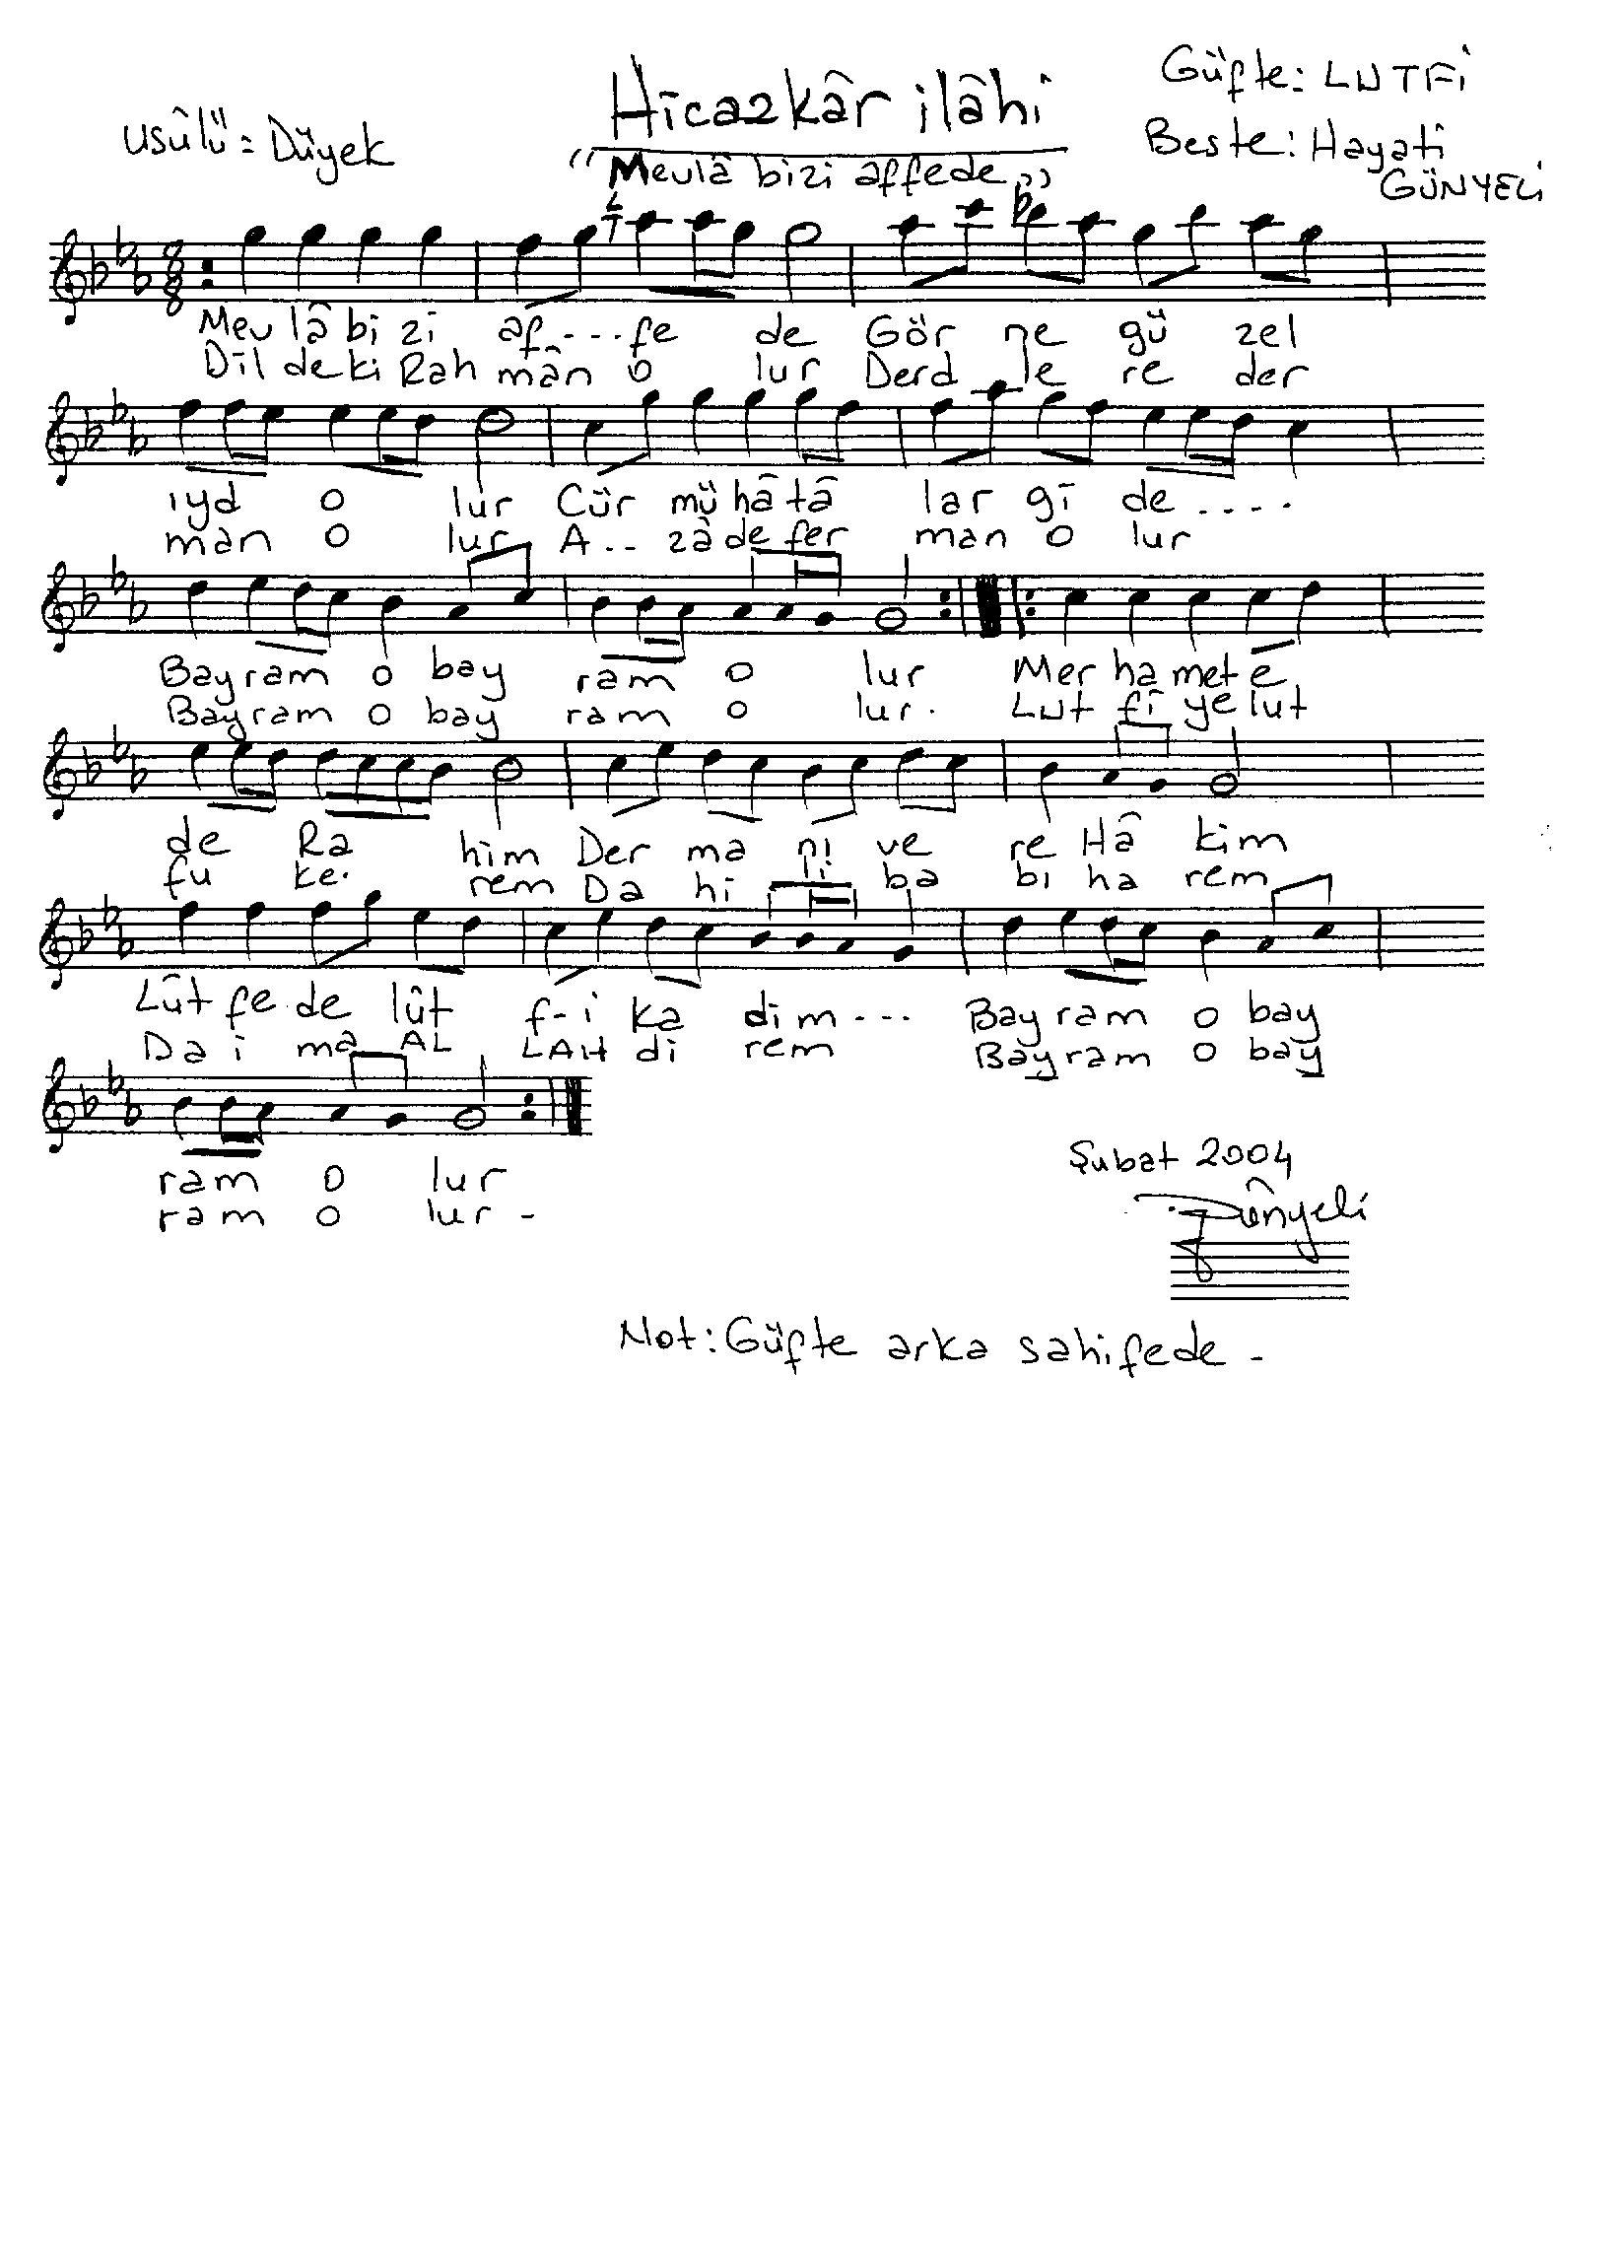 Usûlü = Düyek
Hicazkâr ilâhi
"Mevlâ bizi affede"
Güfte: LUTFi
Beste: Hayati
GÜNYELi
8
8
Mev lâ bi zi af - - - fe de Gör ne gü zel
Dil de ki Rah mân o lur Derd le re der
ıyd o lur Cür mü hâ tâ lar gi de - - - -
man o lur A - - zâ de fer man o lur
Bay ram o bay ram o lur Mer ha met e
Bay ram o bay ram o lur. Lut fî ye lut
de Ra him Der ma ni ve re Hâ kim
fu ke. rem Da hi li ba bi ha rem
Lût fe de lût f-i ka dim - - - Bay ram o bay
Da i ma AL LAH di rem Bay ram o bay
ram o lur
ram o lur -
Şubat 2004
Günyeli
Not: Güfte arka sahifede -